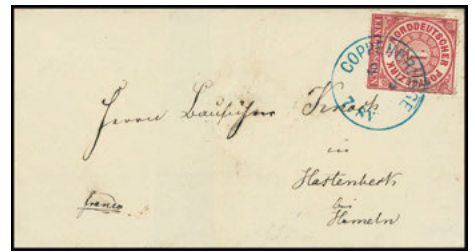 NORDDEUTSCHER POSTBEZIRK
COPPENBRÜGGE
Herrn Bauführer Knoch
in
Hastenbeck
bei
Hameln
franco